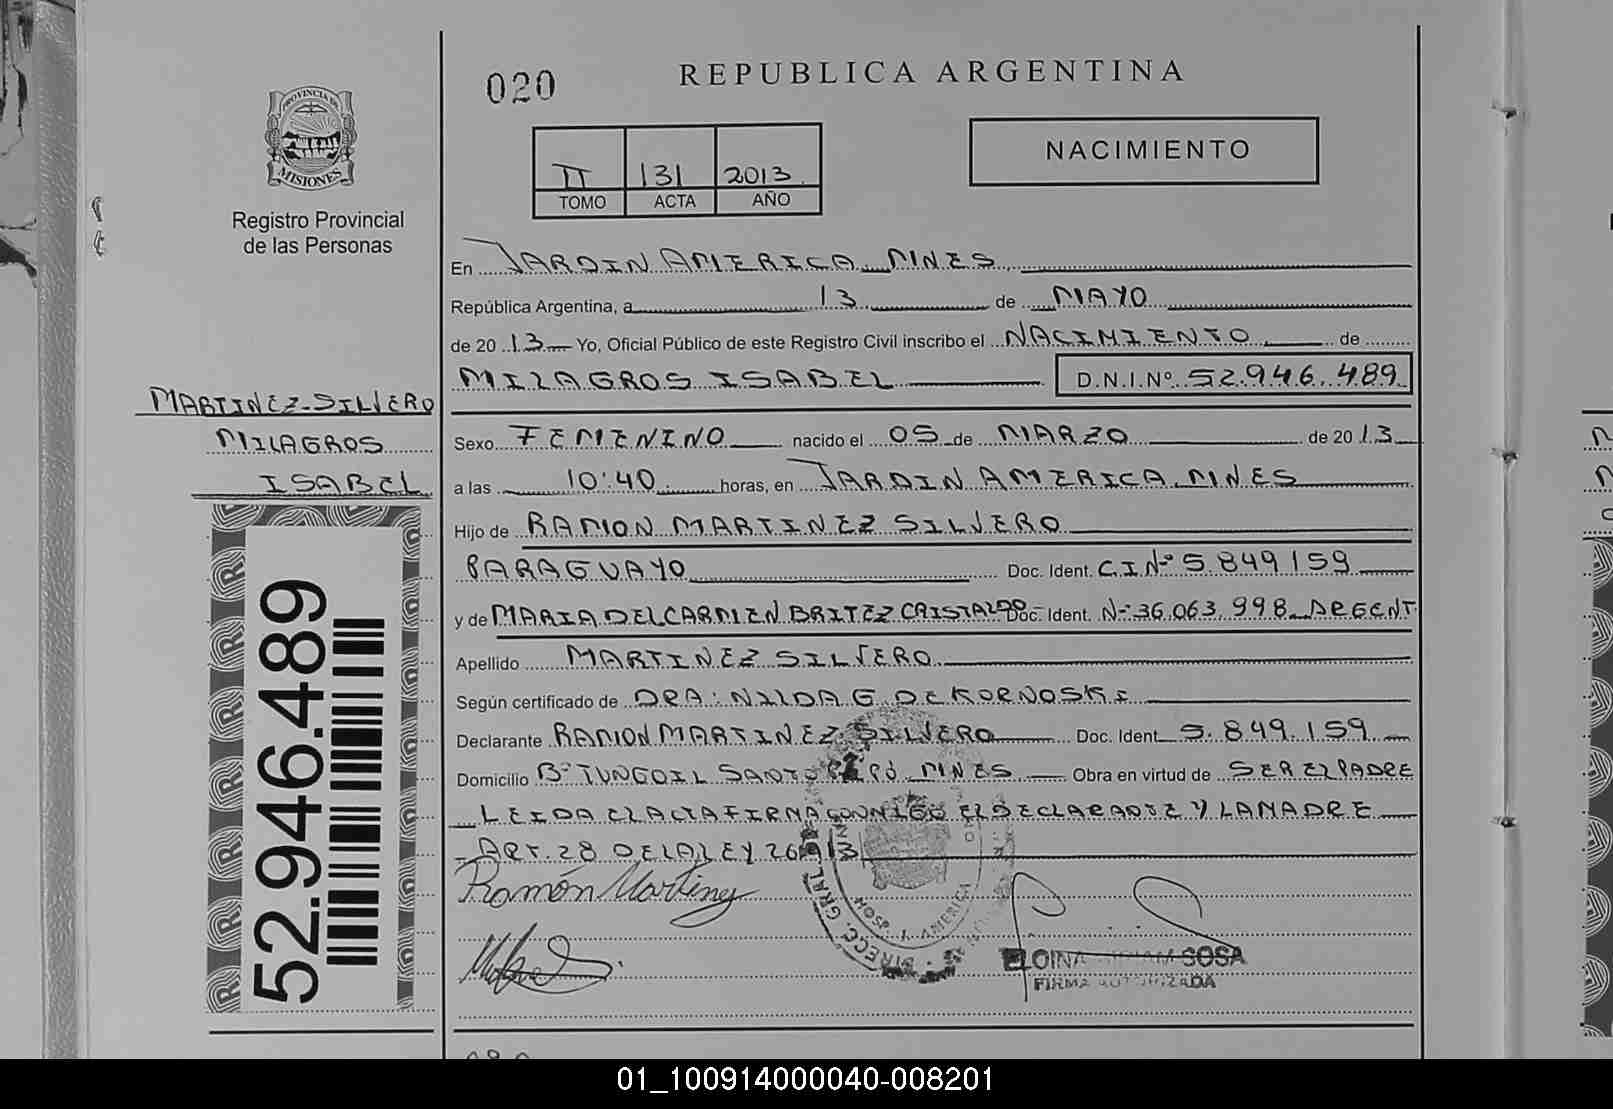 020
REPUBLICA ARGENTINA
PROVINCIA DE
MISIONES
Registro Provincial
de las Personas
II 131 2013
TOMO ACTA AÑO
NACIMIENTO
En JARDIN AMERICA MNES
República Argentina, a 13 de MAYO
de 20 13 Yo, Oficial Público de este Registro Civil inscribo el NACIMIENTO de
MILAGROS ISABEL D.N.I.Nº 52.946.489
MARTINEZ SILVERO
MILAGROS
ISABEL
Sexo FEMENINO nacido el 05 de MARZO de 2013
a las 10:40 horas, en JARDIN AMERICA, MNES
Hijo de RAMON MARTINEZ SILVERO
PARAGUAYO Doc. Ident. C.I.Nº 5.849159
y de MARIA DEL CARMEN BRITEZ CRISTALDO Doc. Ident. Nº 36.063.998 ARGENT.
Apellido MARTINEZ SILVERO
Según certificado de DRA: NILDA G. DEKORNOSKI
Declarante RAMON MARTINEZ SILVERO Doc. Ident. 5.849.159
Domicilio Bº TUNGOIL SANTO PIPÓ MNES Obra en virtud de SER EL PADRE
LEIDA EL ACTA FIRMA CONMIGO EL DECLARANTE Y LA MADRE
- ART. 28 DE LA LEY 26413
Ramón Martinez
DIRECC. GRAL
HOSP. J. AMERICA
SOSA
FIRMA AUTORIZADA
52.946.489
01_100914000040-008201